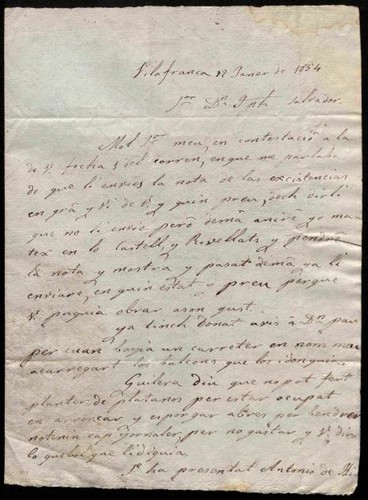 Vilafranca 12 Janer de 1854
Sor Dn Salvador.
Molt Sor meu, en contestació a la
de V. fecha 5 del corren, en que me parlaba
de que li envies la nota de las existencias
en gra y vi de V. y quin preu, dech dirli
que no li envio però demá aniré jo ma
tex en lo Castell y Rovellats y pendré
la nota y mostra, y pasat demá ya li
enviaré, en quin estat o preu perque
V. puguia obrar a son gust.
ya tinch donat avis á Dn Pau
per cuan bagia un carreter en nom meu
a carregar los balcons que los i donguia
Guilera diu que no pot fert
planter de platanos per estar ocupat
en arrincar y esporgar abres per bendrer
notenin cap jornaler, per no gastar y V. dira
lo que bol que li diguia.
Sr ha presentat Antonio de